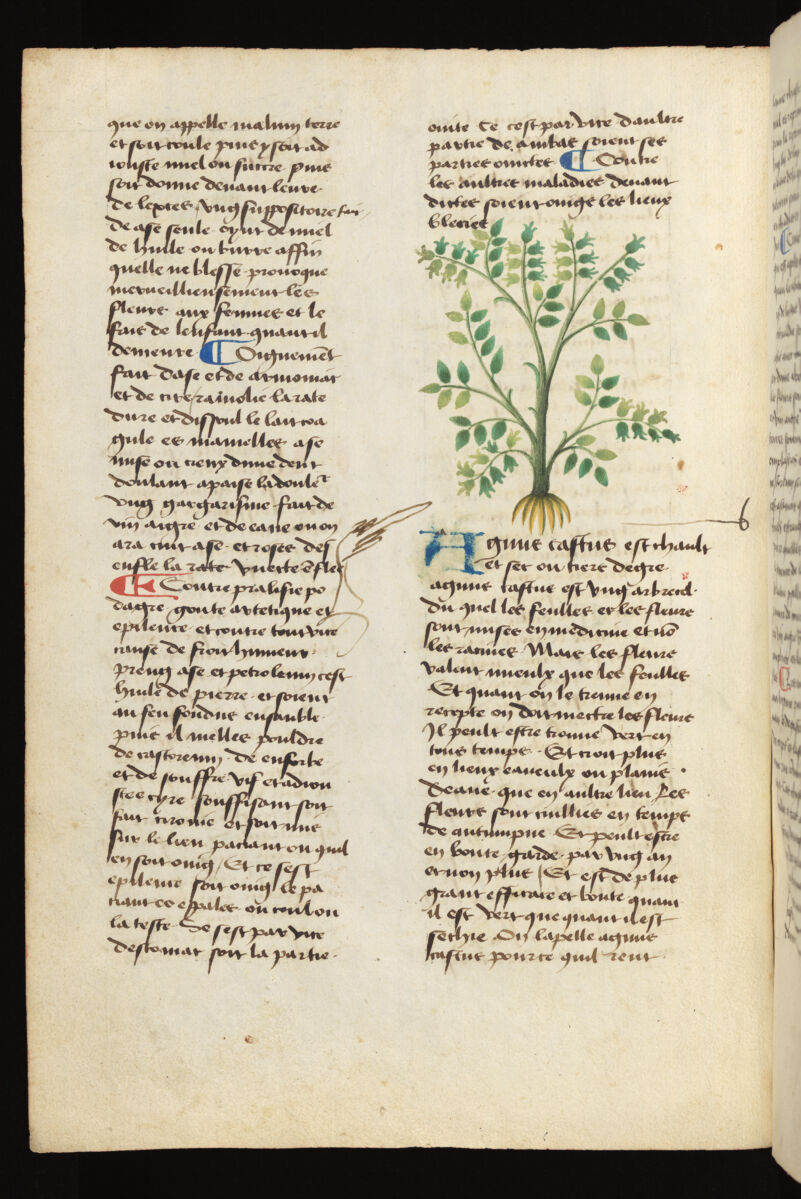 que on appelle malum terre
et soit coule puis y soit ad
iouste miel ou succre puis
soit donne devant leure
de lexces vng suppositoire fai
de ase seule oynt de miel
de huile ou burre affin
quelle ne blesse prouoque
merueilleusement les
fleurs aux femmes et le
fais de lenfant quant il
demeure ¶ Oignement
fait dase et de armoniac
et de cire ramolie la rate
dure et dissoul le lait coa
gule es mamelles ase
mise ou creux dune dent
doulant apaise la douleur
vng gargarisme fait de
vin aigre et de eaue ou on
ara cuit ase et roses des
enfle la
¶ Contre pralisie po
dagre goute artetique et
epilencie et contre tout vice
cause de froit humeur
preng ase et petroleum cest
huile de pierre et soient
au feu fondus ensamble
puis il melles pouldre
de castoreum de euforbe
et de souffre vif et adiou
stes cyre souffisant soit
fait cironie et soit mis
sur le lieu paciant ou quil
en soit oing Et ce sest
epilencie soit oing le pa
ciant es espales ou coul ou
la teste Se sest par vice
destomac soit la partie
ointe Se cest par vice daultre
partie de ambas soient ses
parties ointes ¶ Contre
les aultres maladies deuant
dittes soient oings les lieux
blecies
Agnus castus est chault
et sec ou tiers degre
agnus castus est vng arbrecel
du quel les feulles et les fleurs
sont mises en medicine et non
les racines Mais les fleurs
valent mieulx que les feulles
Et quant on le treuue en
recepte on doit mectre les fleurs
Il peult estre trouue vert en
tous temps Et croit plus
en lieux eaueulx ou plains
deaue que en aultre lieu Les
fleurs sont cuillies en temps
de autumpne Et peult estre
en bonte garde par vng an
et non plus Et est de plus
grant efficace et bonte quant
il est vert que quant il est
sechie On lapelle agnus
castus pource quil rent